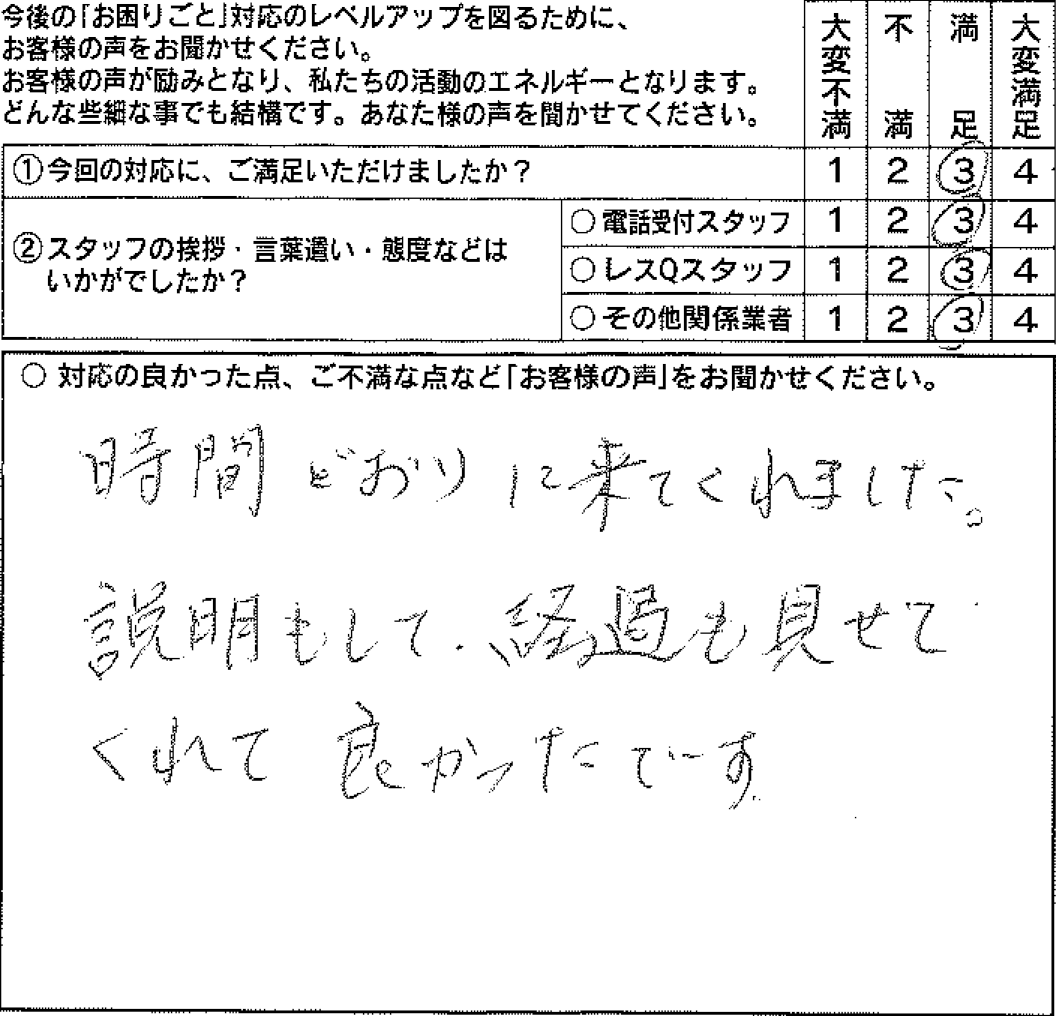 今後の「お困りごと」対応のレベルアップを図るために、
お客様の声をお聞かせください。
お客様の声が励みとなり、私たちの活動のエネルギーとなります。
どんな些細な事でも結構です。あなた様の声を聞かせてください。
大変不満 不満 満足 大変満足
①今回の対応に、ご満足いただけましたか? 1 2 3 4
②スタッフの挨拶・言葉遣い・態度などは
いかがでしたか?
○電話受付スタッフ 1 2 3 4
○レスQスタッフ 1 2 3 4
○その他関係業者 1 2 3 4
○ 対応の良かった点、ご不満な点など「お客様の声」をお聞かせください。
時間どおりに来てくれました。
説明もして、経過も見せて
くれて良かったです